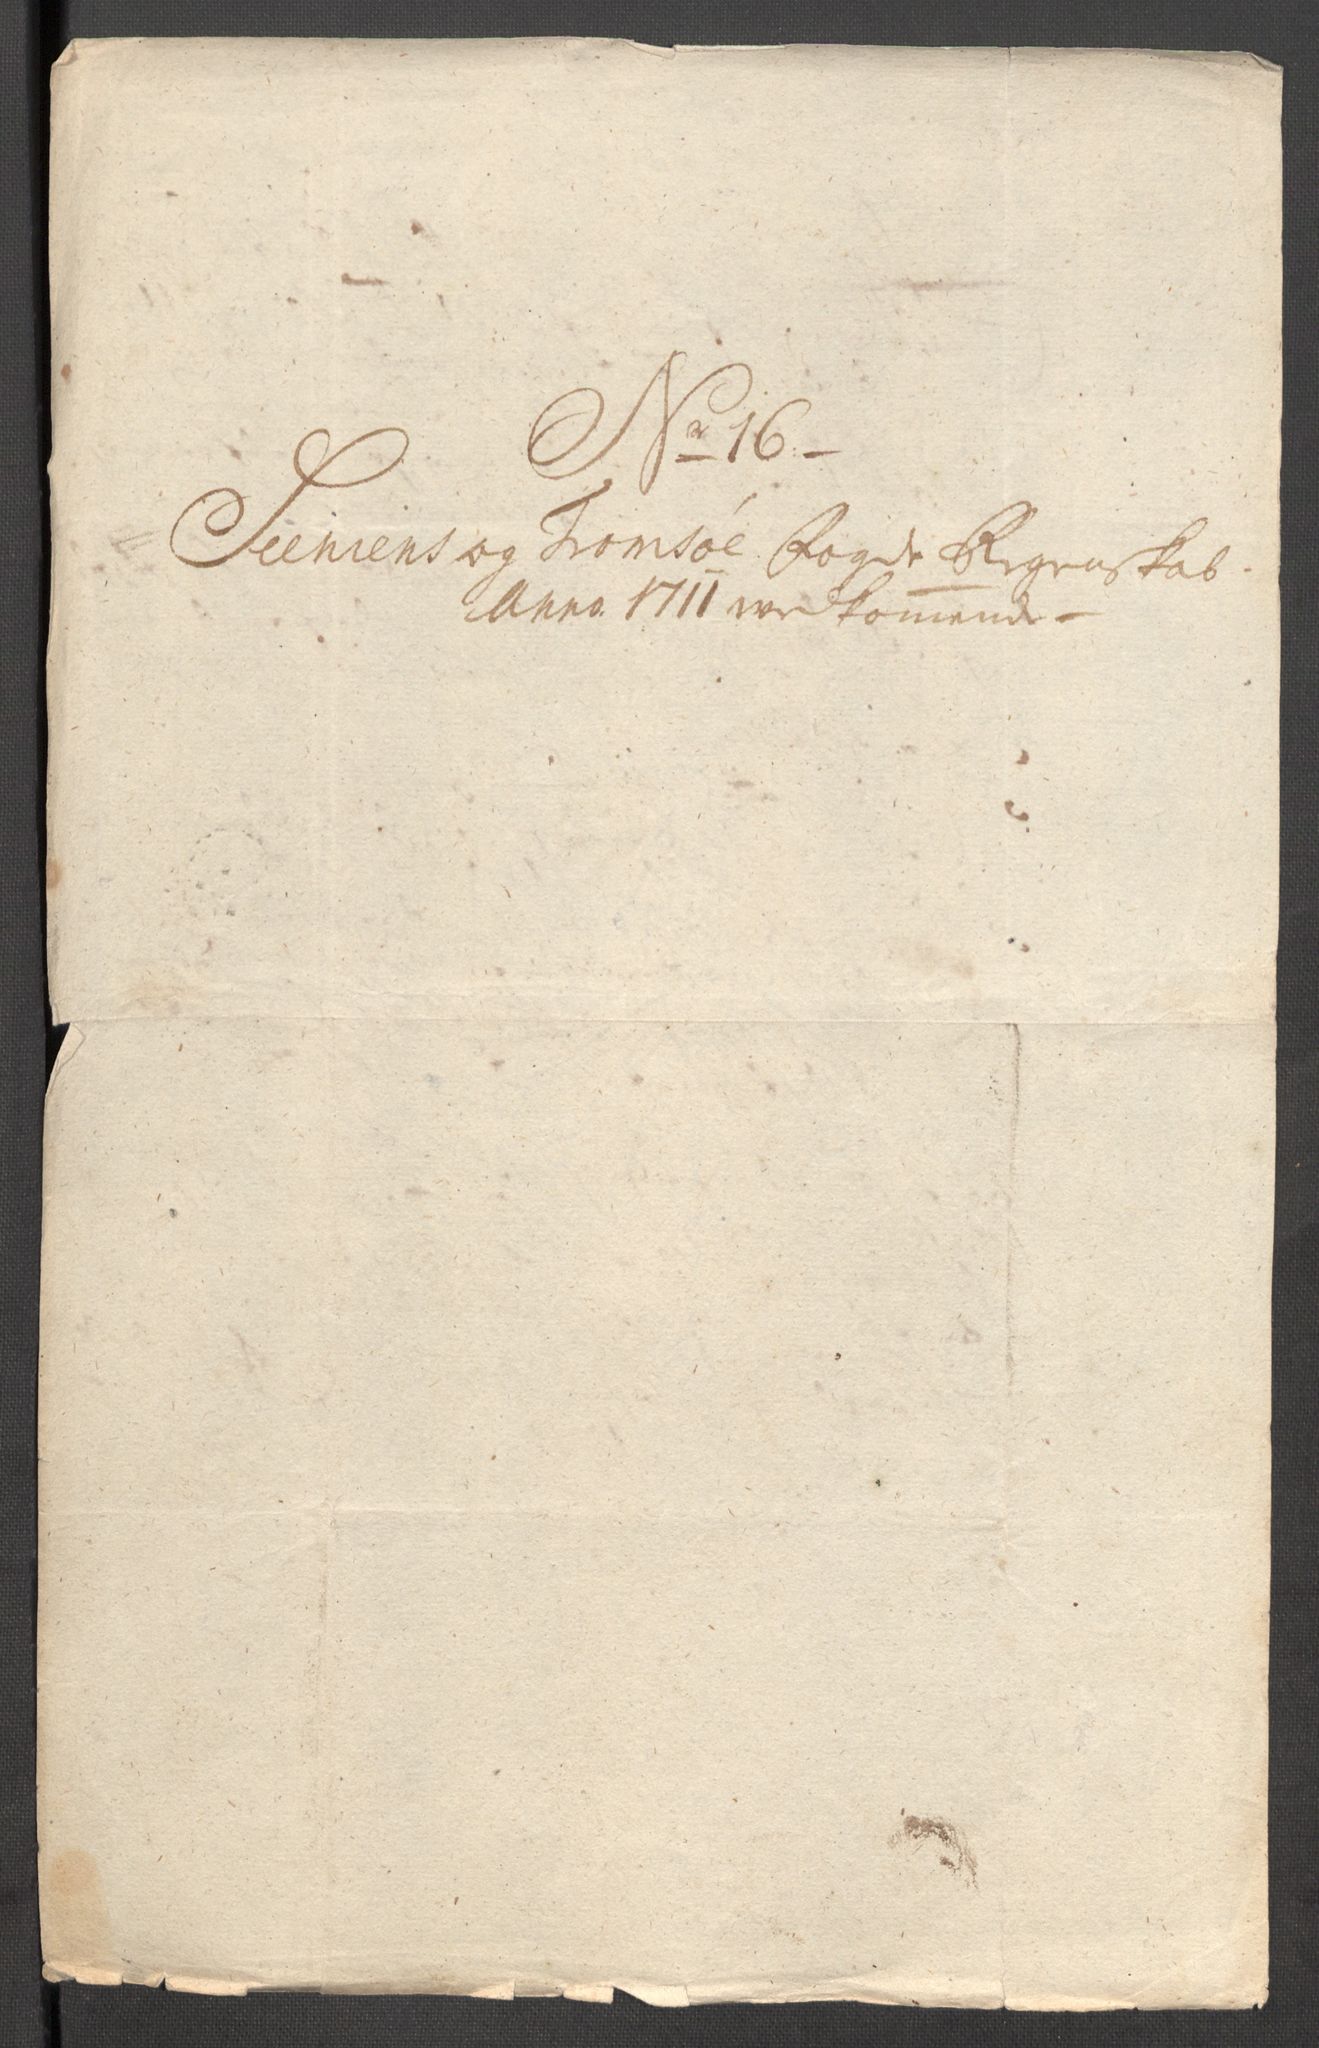 Nr 16 –
Seeniens og Tromsøe Fogde Regenskab
Anno 1711 wedkom̅ende –